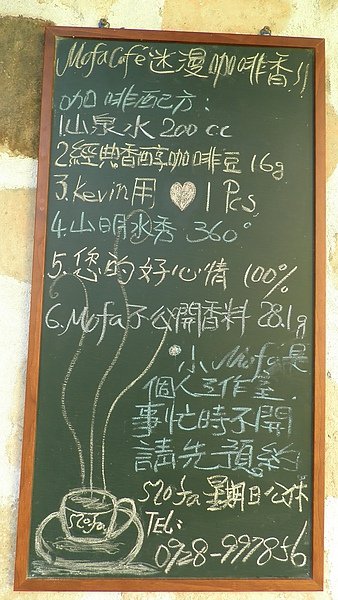 Mofa Café迷漫咖啡香!!
咖啡配方:
1山泉水 200 cc
2.經典香醇咖啡豆 16g
3.Kevin用 ♥ 1 Pcs,
4.山明水秀 360°
5.您的好心情 100%
6.Mofa不公開香料 28.1g
小Mofa是
個人工作室.
事忙時不開
請先預約
Mofa星期日公休
TEL:
0928-997856
Mofa